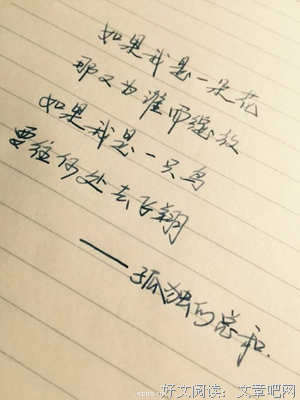 如果我是一朵花
那又为谁而绽放
如果我是一只鸟
要往何处去飞翔
——孤独的总和.
oppo
好文阅读：文章吧网